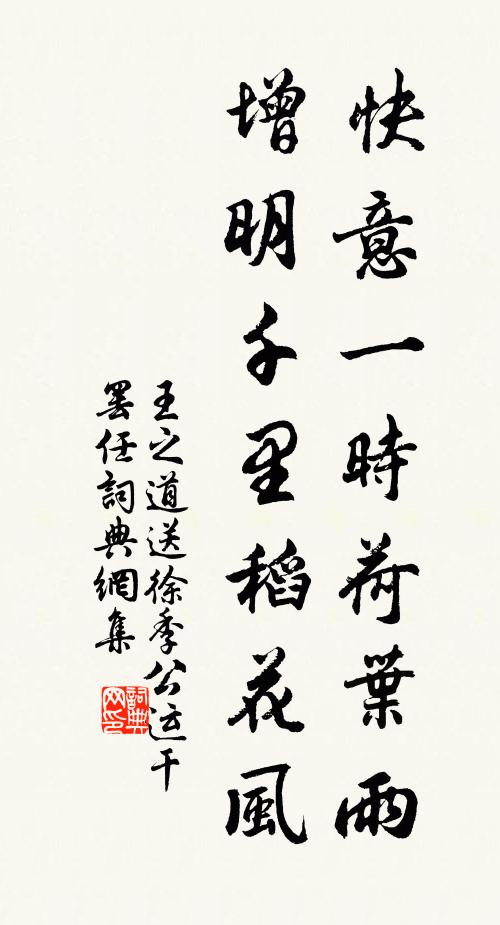 快意一時荷葉雨
增明千里稻花風
王之道送徐季公运干
罢任詞典網集
詞典网印